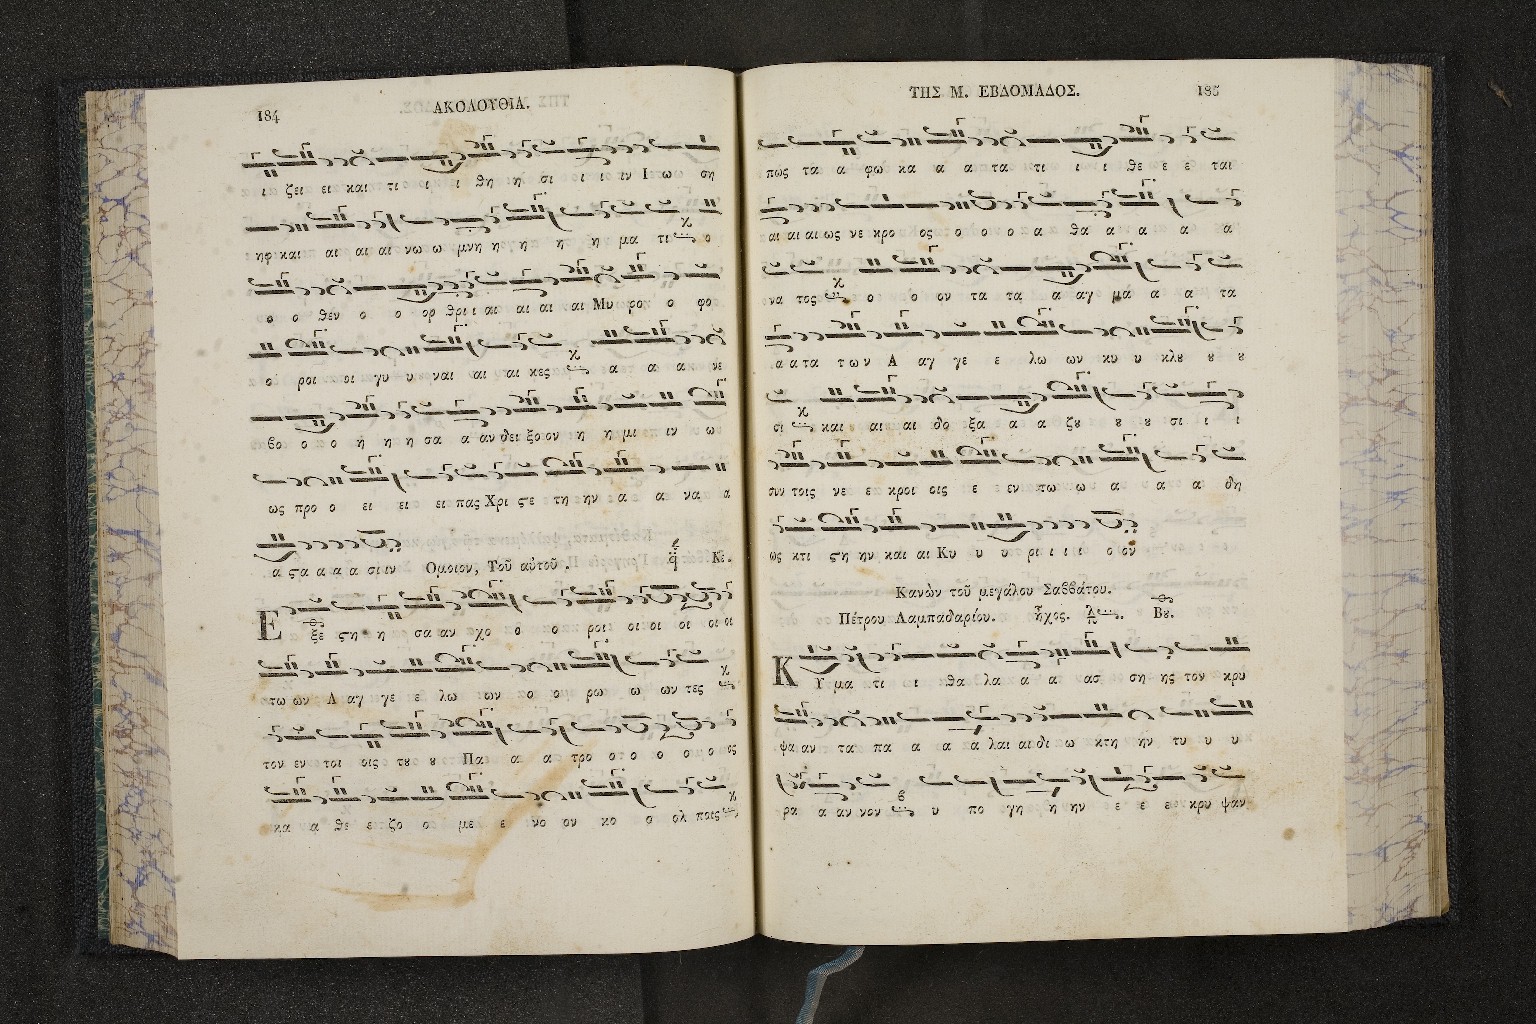 184 ΑΚΟΛΟΥΘΙΑ.
ι ζει ει και τι ι ι θη η σι ι ι ιν Ι ω ση
ηφ και αι αι αι νω ω μνη η η η η μα τι ο
ο ο θεν ο ο ορ θρι ι αι αι αι αι Μυ ρο ο φο
ο ροι οι γυ υ ναι αι αι κες α α α νε
βο ο ο η η η σα α αν δει ξο ον η η μι ιν ω
ως προ ο ει ει ει πας Χρι ϛε τη ην α α να α
α ϛα α α α σι ιν Ομοιον, Τοῦ αὐτοῦ. Κε.
Ε ξε ϛη η σα αν χο ο ο ροι οι οι οι οι οι
τω ων Α αγ γε ε λω ων χο ο ρω ω ων τες
τον εν τοι οις του ου Πα α α τρο ο ο ο ο ο ος
κα α θε ε ζο ο με ε νο ον κο ο ολ ποις
ΤΗΣ Μ. ΕΒΔΟΜΑΔΟΣ. 185
πως τα α φω κα α α τα τι ι ι θε ε ε ται
αι αι αι ως νε κρο ος ο ο ο α θα α α α α
να τος ο ο ον τα τα α αγ μα α α τα
α α τα των Α αγ γε ε λω ων κυ υ κλȣ ȣ ȣ
σι και αι αι δο ξα α α ζȣ ȣ ȣ σι ι ι
συν τοις νε ε κροι οις ε εν τω ω α α α δη
ως κτι ϛη ην και αι Κυ υ υ ρι ι ι ι ο ον
Κανὼν τοῦ μεγάλου Σαββάτου.
Πέτρου Λαμπαδαρίου. ἦχος. Βȣ.
Κ Υ μα τι ι θα λα α α ασ ση ης τον κρυ
ψα αν τα πα α α α λαι αι δι ω κτη ην τυ υ υ
ρα α αν νον υ πο γη η ην ε ε εκ κρυ ψαν